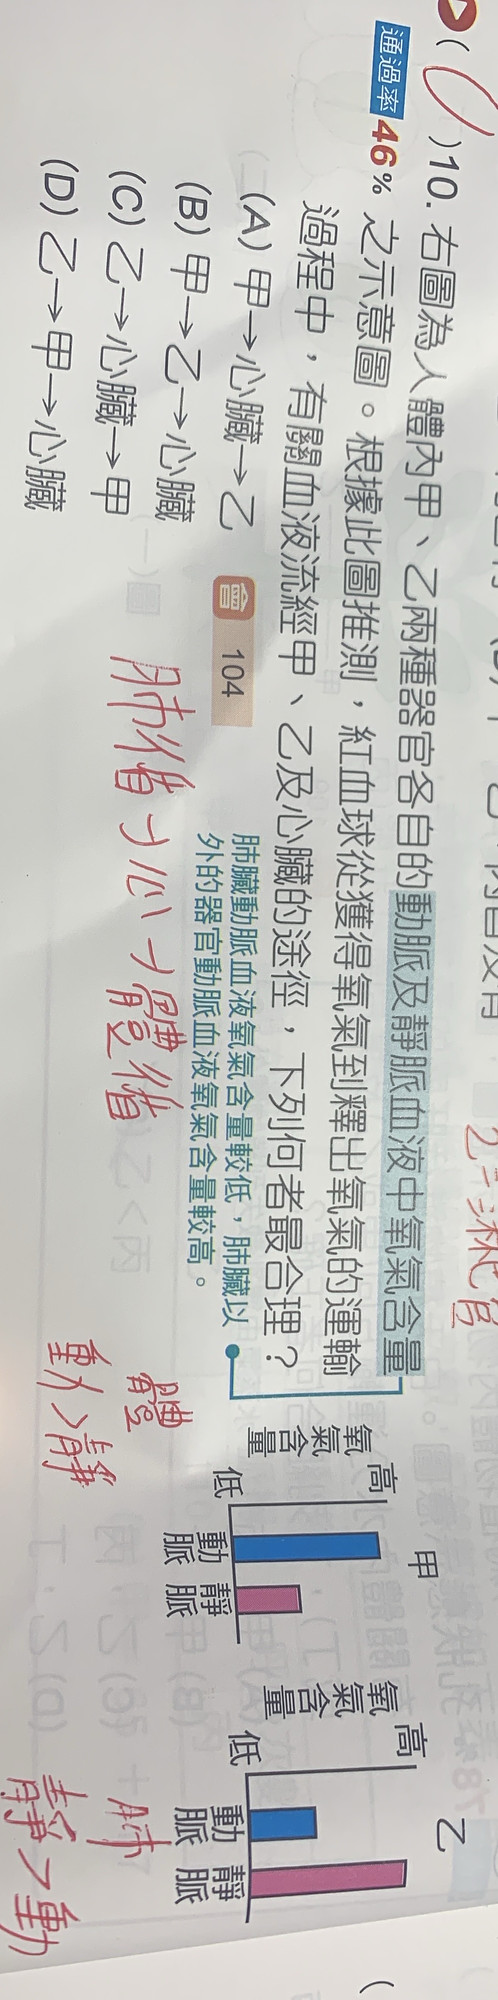 ( C )10. 右圖為人體內甲、乙兩種器官各自的動脈及靜脈血液中氧氣含量
通過率 46% 之示意圖。根據此圖推測，紅血球從獲得氧氣到釋出氧氣的運輸
過程中，有關血液流經甲、乙及心臟的途徑，下列何者最合理？
(A) 甲→心臟→乙
(B) 甲→乙→心臟
(C) 乙→心臟→甲
(D) 乙→甲→心臟
會 104
肺臟動脈血液氧氣含量較低，肺臟以
外的器官動脈血液氧氣含量較高。
肺循→心→體循
甲
氧氣含量
高
低
動脈
靜脈
體
動>靜
乙
氧氣含量
高
低
動脈
靜脈
肺
靜>動